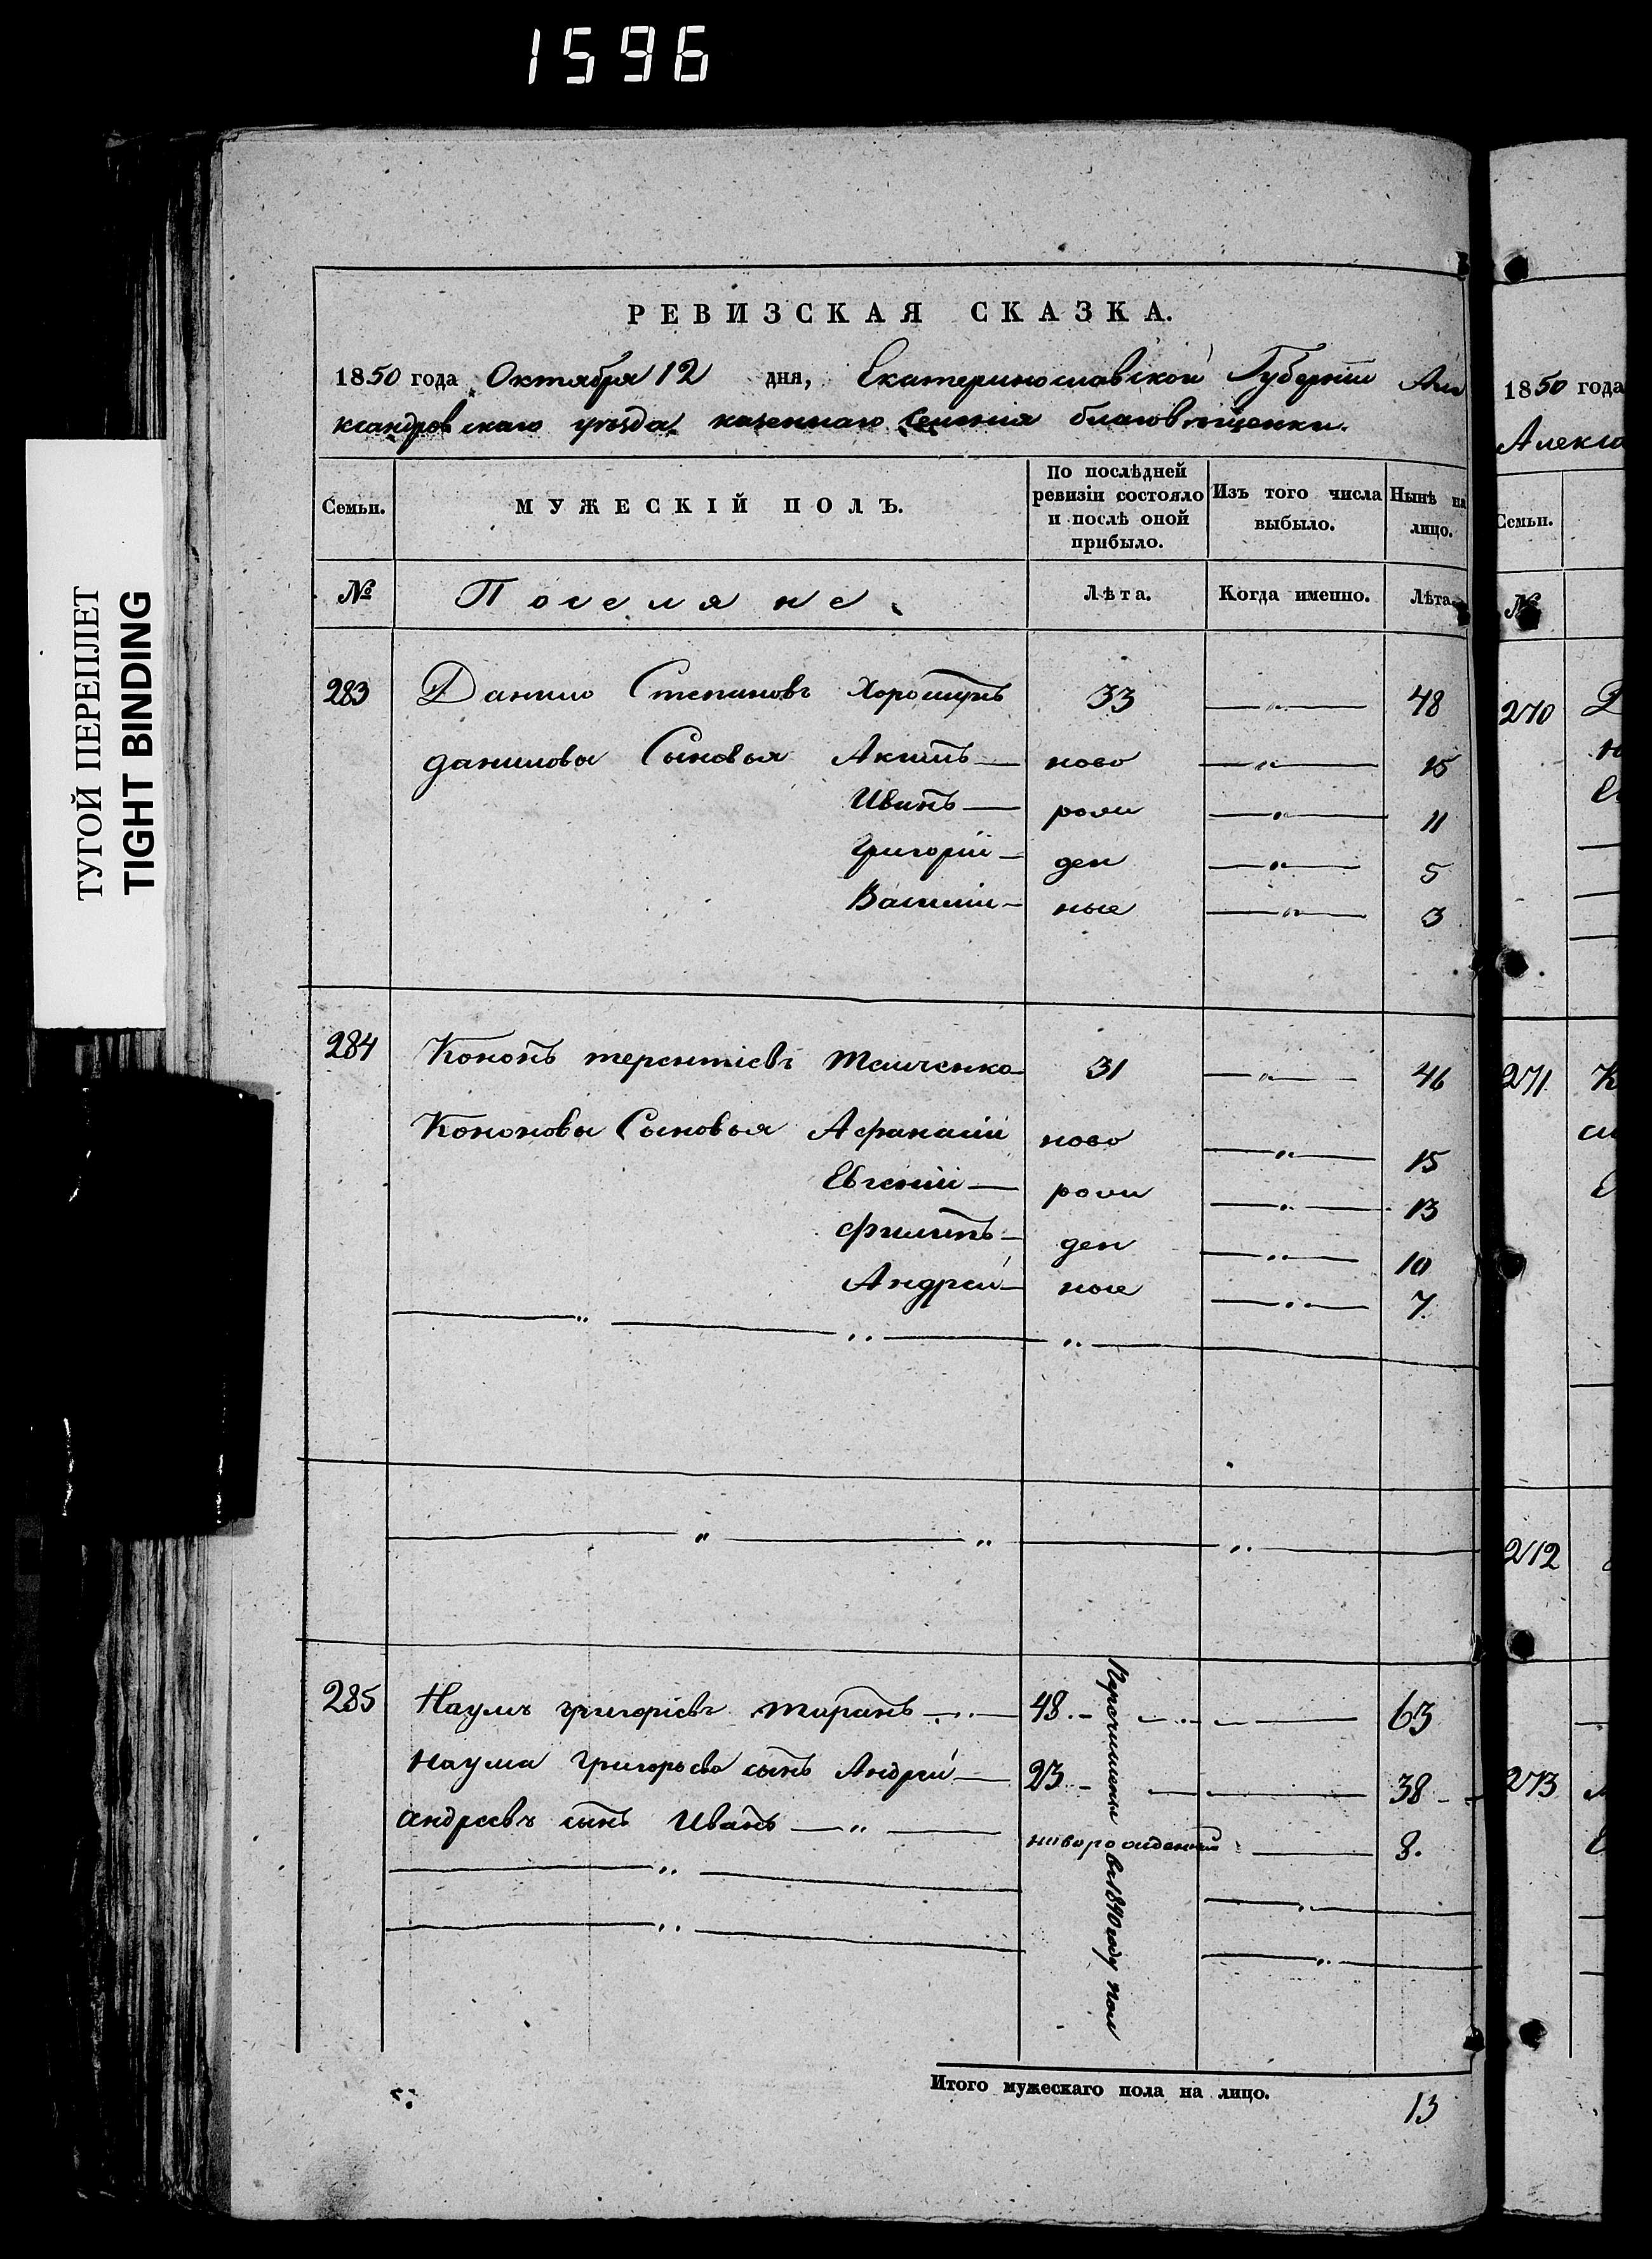 1596
ТУГОЙ ПЕРЕПЛЕТ
TIGHT BINDING
РЕВИЗСКАЯ СКАЗКА.
1850 года Октября 12 дня, Екатеринославской Губернiи Але
ксандровскаго уезда казеннаго селенiя благовѣщенки.
Семьи.
МУЖЕСКIЙ ПОЛЪ.
По послѣдней ревизiи состояло и послѣ оной прибыло.
Изъ того числа выбыло.
Нынѣ на лицо.
№ Поселяне. Лѣта. Когда именно. Лѣта.
283 Данило Степановъ Хорошунъ 33 — „ — 48
даниловы Сыновья Акимъ — ново — „ — 15
Иванъ — рож — „ — 11
Григорiй — ден — „ — 5
Василiй — ные — „ — 3
284 Кононъ терентiевъ 31 — „ — 46
Кононовы Сыновья Афанасiй ново — „ — 15
Евгенiй — рож — „ — 13
Филипъ — ден — „ — 10
Андрей — ные — „ — 7.
285 Наумъ григорiевъ таранъ — 48. — 63
Наума Григорьева сынъ Андрей — 23 — 38
Андреевъ сынъ Иванъ — „ — новорожденный — 8.
Перечислены въ 1840 году
Итого мужескаго пола на лицо. 13
1850 года
Алекса
Семьи.
№
270
271
272
273